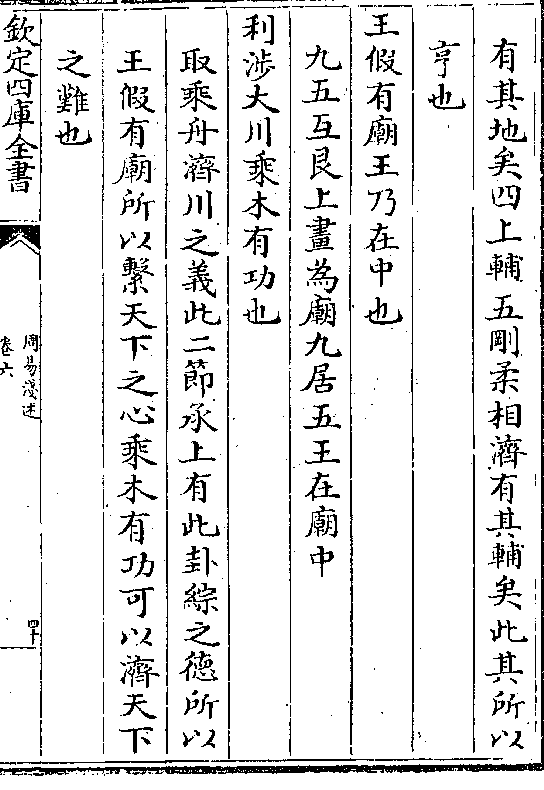 有其地矣四上輔五剛柔相濟有其輔矣此其所以
亨也
王假有廟王乃在中也
九五互艮上畫為廟九居五王在廟中
利涉大川乘木有功也
取乘舟濟川之義此二節承上有此卦綜之德所以
王假有廟所以繫天下之心乘木有功可以濟天下
之難也
欽定四庫全書
周易淺述
卷六
四十